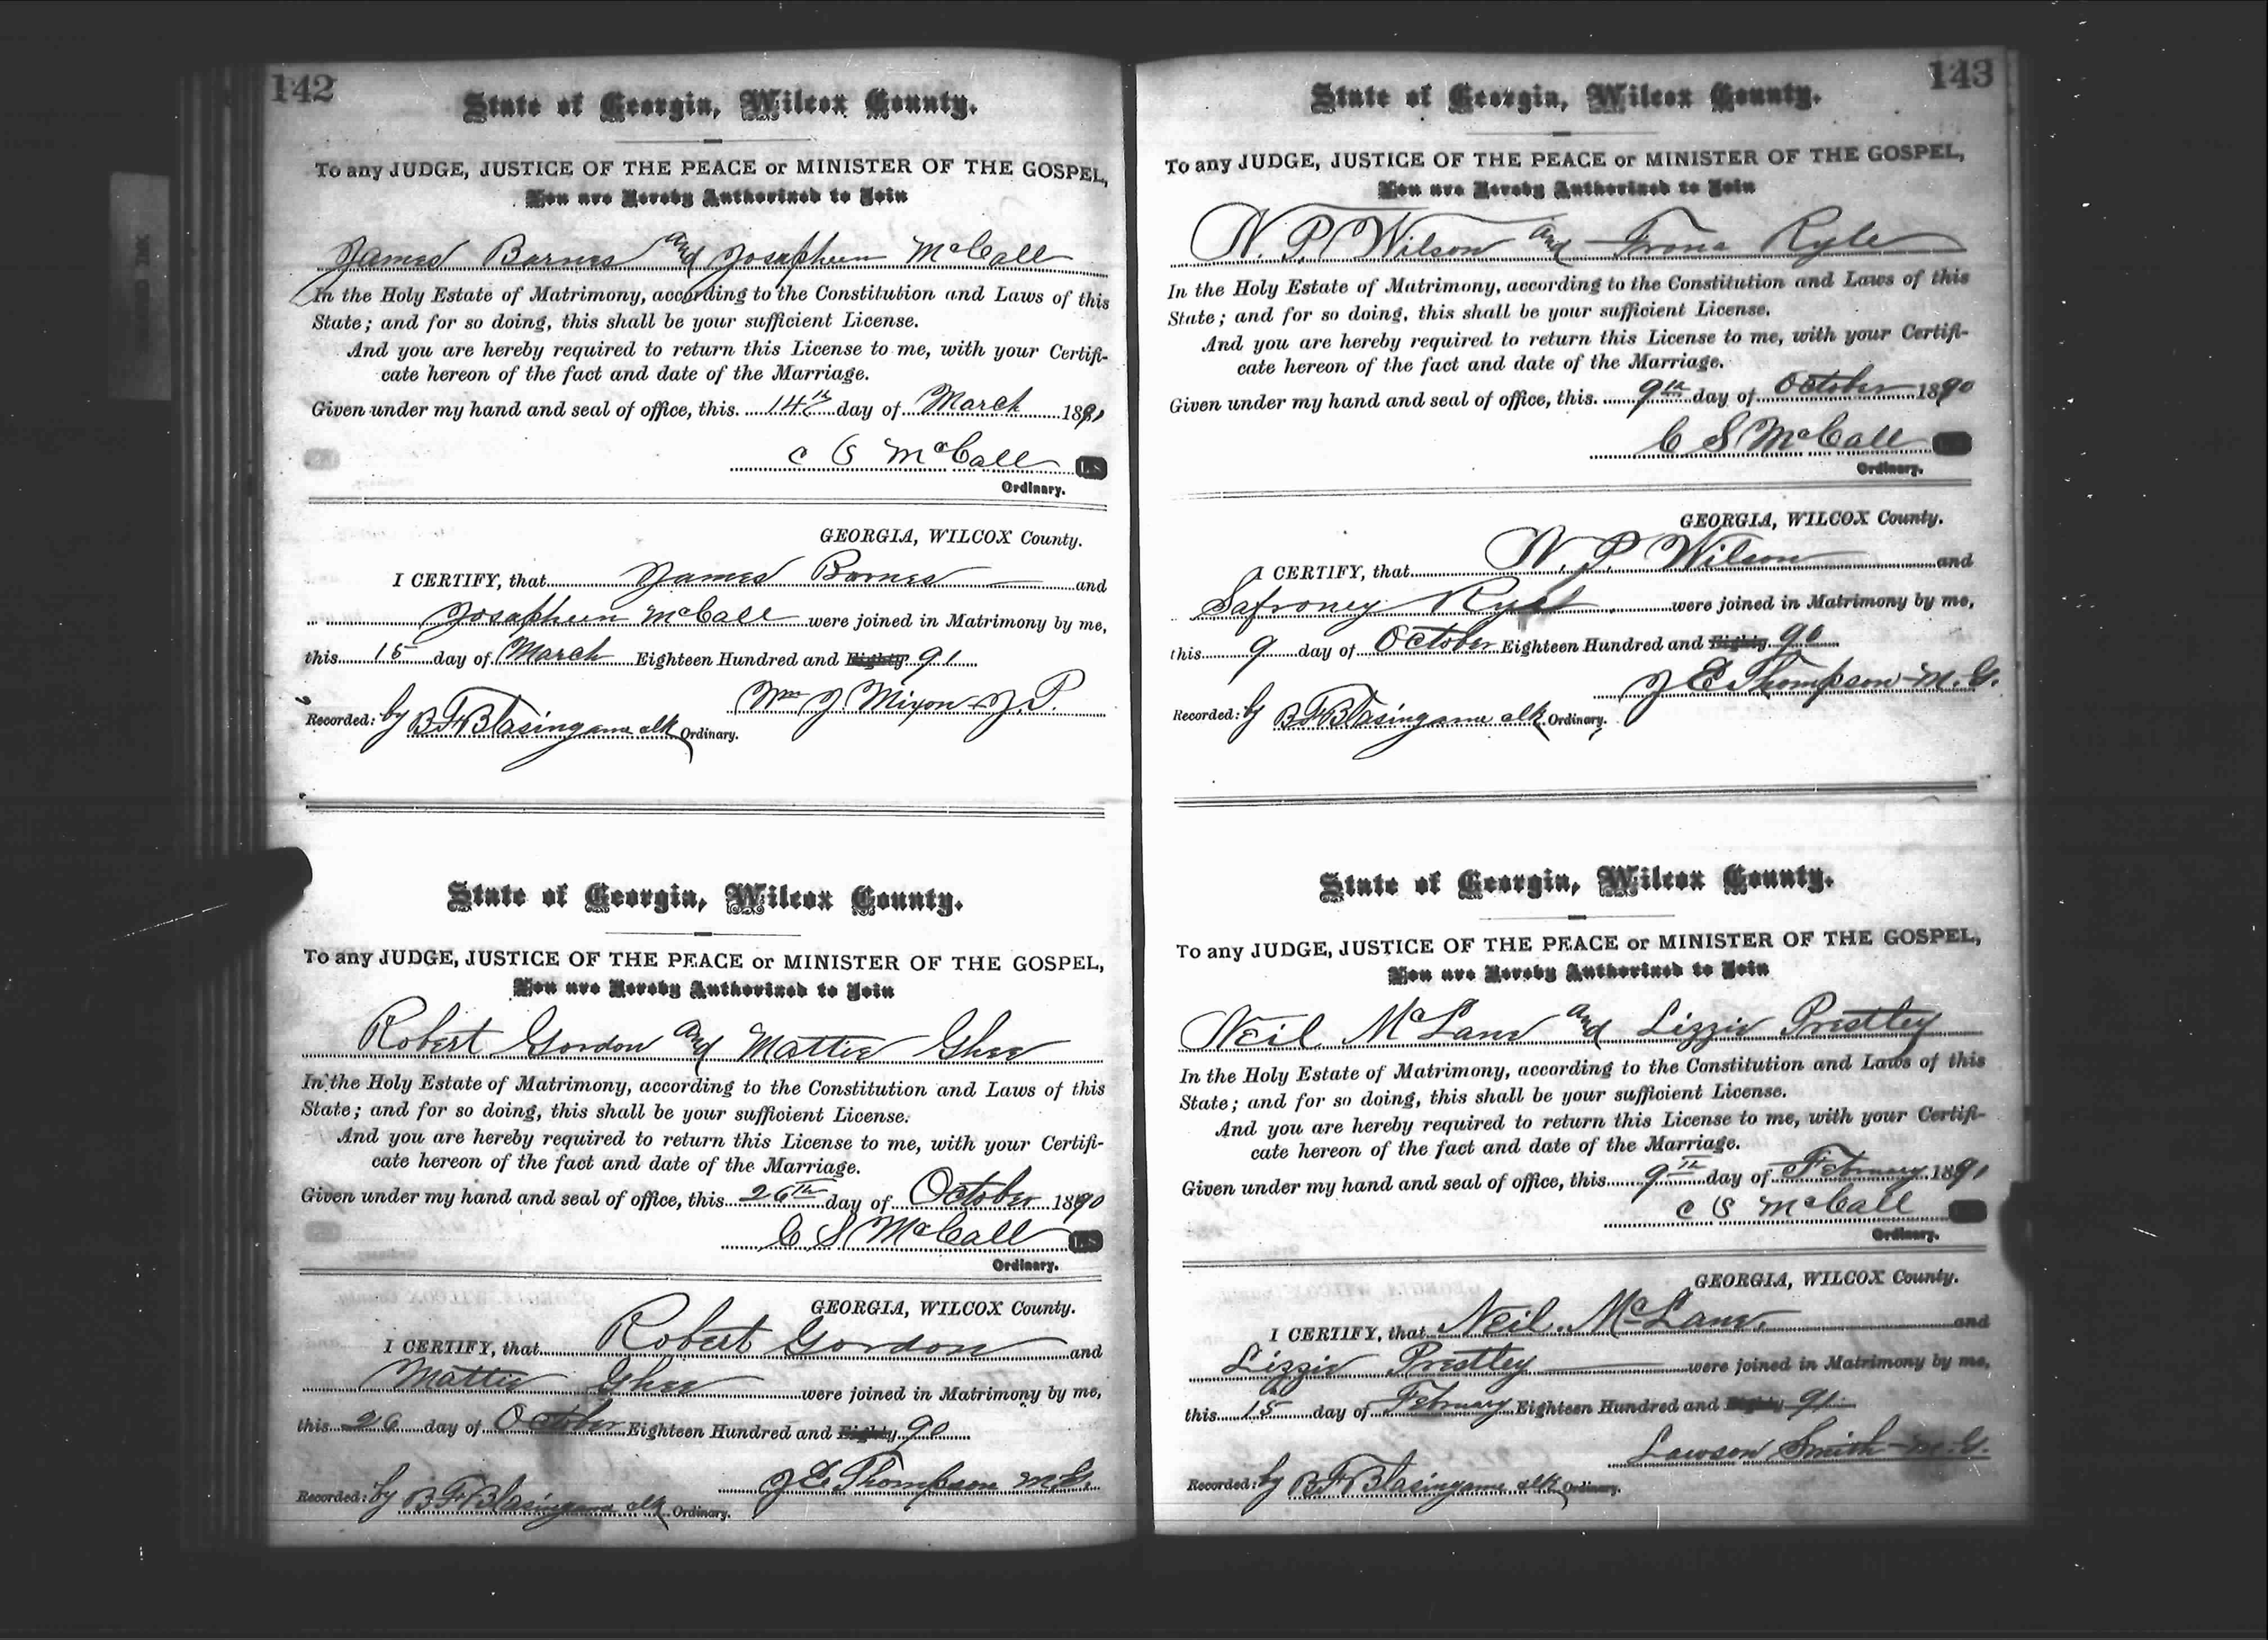 142
State of Georgia, Wilcox County.
To any JUDGE, JUSTICE OF THE PEACE or MINISTER OF THE GOSPEL,
You are Hereby Authorized to Join
James Barnes and Josapheen McCall
In the Holy Estate of Matrimony, according to the Constitution and Laws of this
State; and for so doing, this shall be your sufficient License.
And you are hereby required to return this License to me, with your Certifi-
cate hereon of the fact and date of the Marriage.
Given under my hand and seal of office, this 14th day of March 1891
C S McCall L.S
Ordinary.
GEORGIA, WILCOX County.
I CERTIFY, that James Barnes and
Josapheen McCall were joined in Matrimony by me,
this 15 day of March Eighteen Hundred and Eighty 91
Wm J Mixon J.P.
Recorded: by B F Blasingame clk Ordinary.
State of Georgia, Wilcox County.
To any JUDGE, JUSTICE OF THE PEACE or MINISTER OF THE GOSPEL,
You are Hereby Authorized to Join
Robert Gordon and Mattie Ghee
In the Holy Estate of Matrimony, according to the Constitution and Laws of this
State; and for so doing, this shall be your sufficient License.
And you are hereby required to return this License to me, with your Certifi-
cate hereon of the fact and date of the Marriage.
Given under my hand and seal of office, this 26th day of October 1890
C S McCall L.S
Ordinary.
GEORGIA, WILCOX County.
I CERTIFY, that Robert Gordon and
Mattie Ghee were joined in Matrimony by me,
this 26 day of October Eighteen Hundred and Eighty 90
J E Thompson M.G.
Recorded: by B F Blasingame clk Ordinary.
143
State of Georgia, Wilcox County.
To any JUDGE, JUSTICE OF THE PEACE or MINISTER OF THE GOSPEL,
You are Hereby Authorized to Join
N. P. Wilson and Frona Ryle
In the Holy Estate of Matrimony, according to the Constitution and Laws of this
State; and for so doing, this shall be your sufficient License.
And you are hereby required to return this License to me, with your Certifi-
cate hereon of the fact and date of the Marriage.
Given under my hand and seal of office, this 9th day of October 1890
C S McCall
Ordinary.
GEORGIA, WILCOX County.
I CERTIFY, that N. P. Wilson and
Safroney were joined in Matrimony by me,
this 9 day of October Eighteen Hundred and Eighty 90
J E Thompson M.G.
Recorded: by B F Blasingame clk Ordinary.
State of Georgia, Wilcox County.
To any JUDGE, JUSTICE OF THE PEACE or MINISTER OF THE GOSPEL,
You are Hereby Authorized to Join
Neil McLane and Lizzie Prestley
In the Holy Estate of Matrimony, according to the Constitution and Laws of this
State; and for so doing, this shall be your sufficient License.
And you are hereby required to return this License to me, with your Certifi-
cate hereon of the fact and date of the Marriage.
Given under my hand and seal of office, this 9th day of February 1891
C S McCall
Ordinary.
GEORGIA, WILCOX County.
I CERTIFY, that Neil McLane and
Lizzie Prestley were joined in Matrimony by me,
this 15 day of February Eighteen Hundred and Eighty 91
Lawson Smith M.G.
Recorded: by B F Blasingame clk Ordinary.